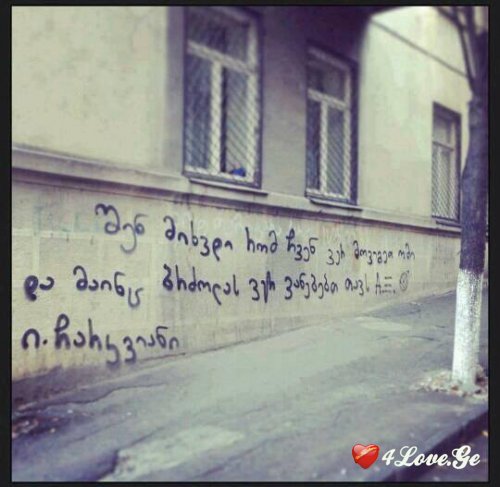 შენ მიხვდი რომ ჩვენ ვერ მოვიგეთ ომი
და მაინც ბრძოლას ვერ ვანებებთ თავს
ი.ჩარკვიანი
4Love.Ge